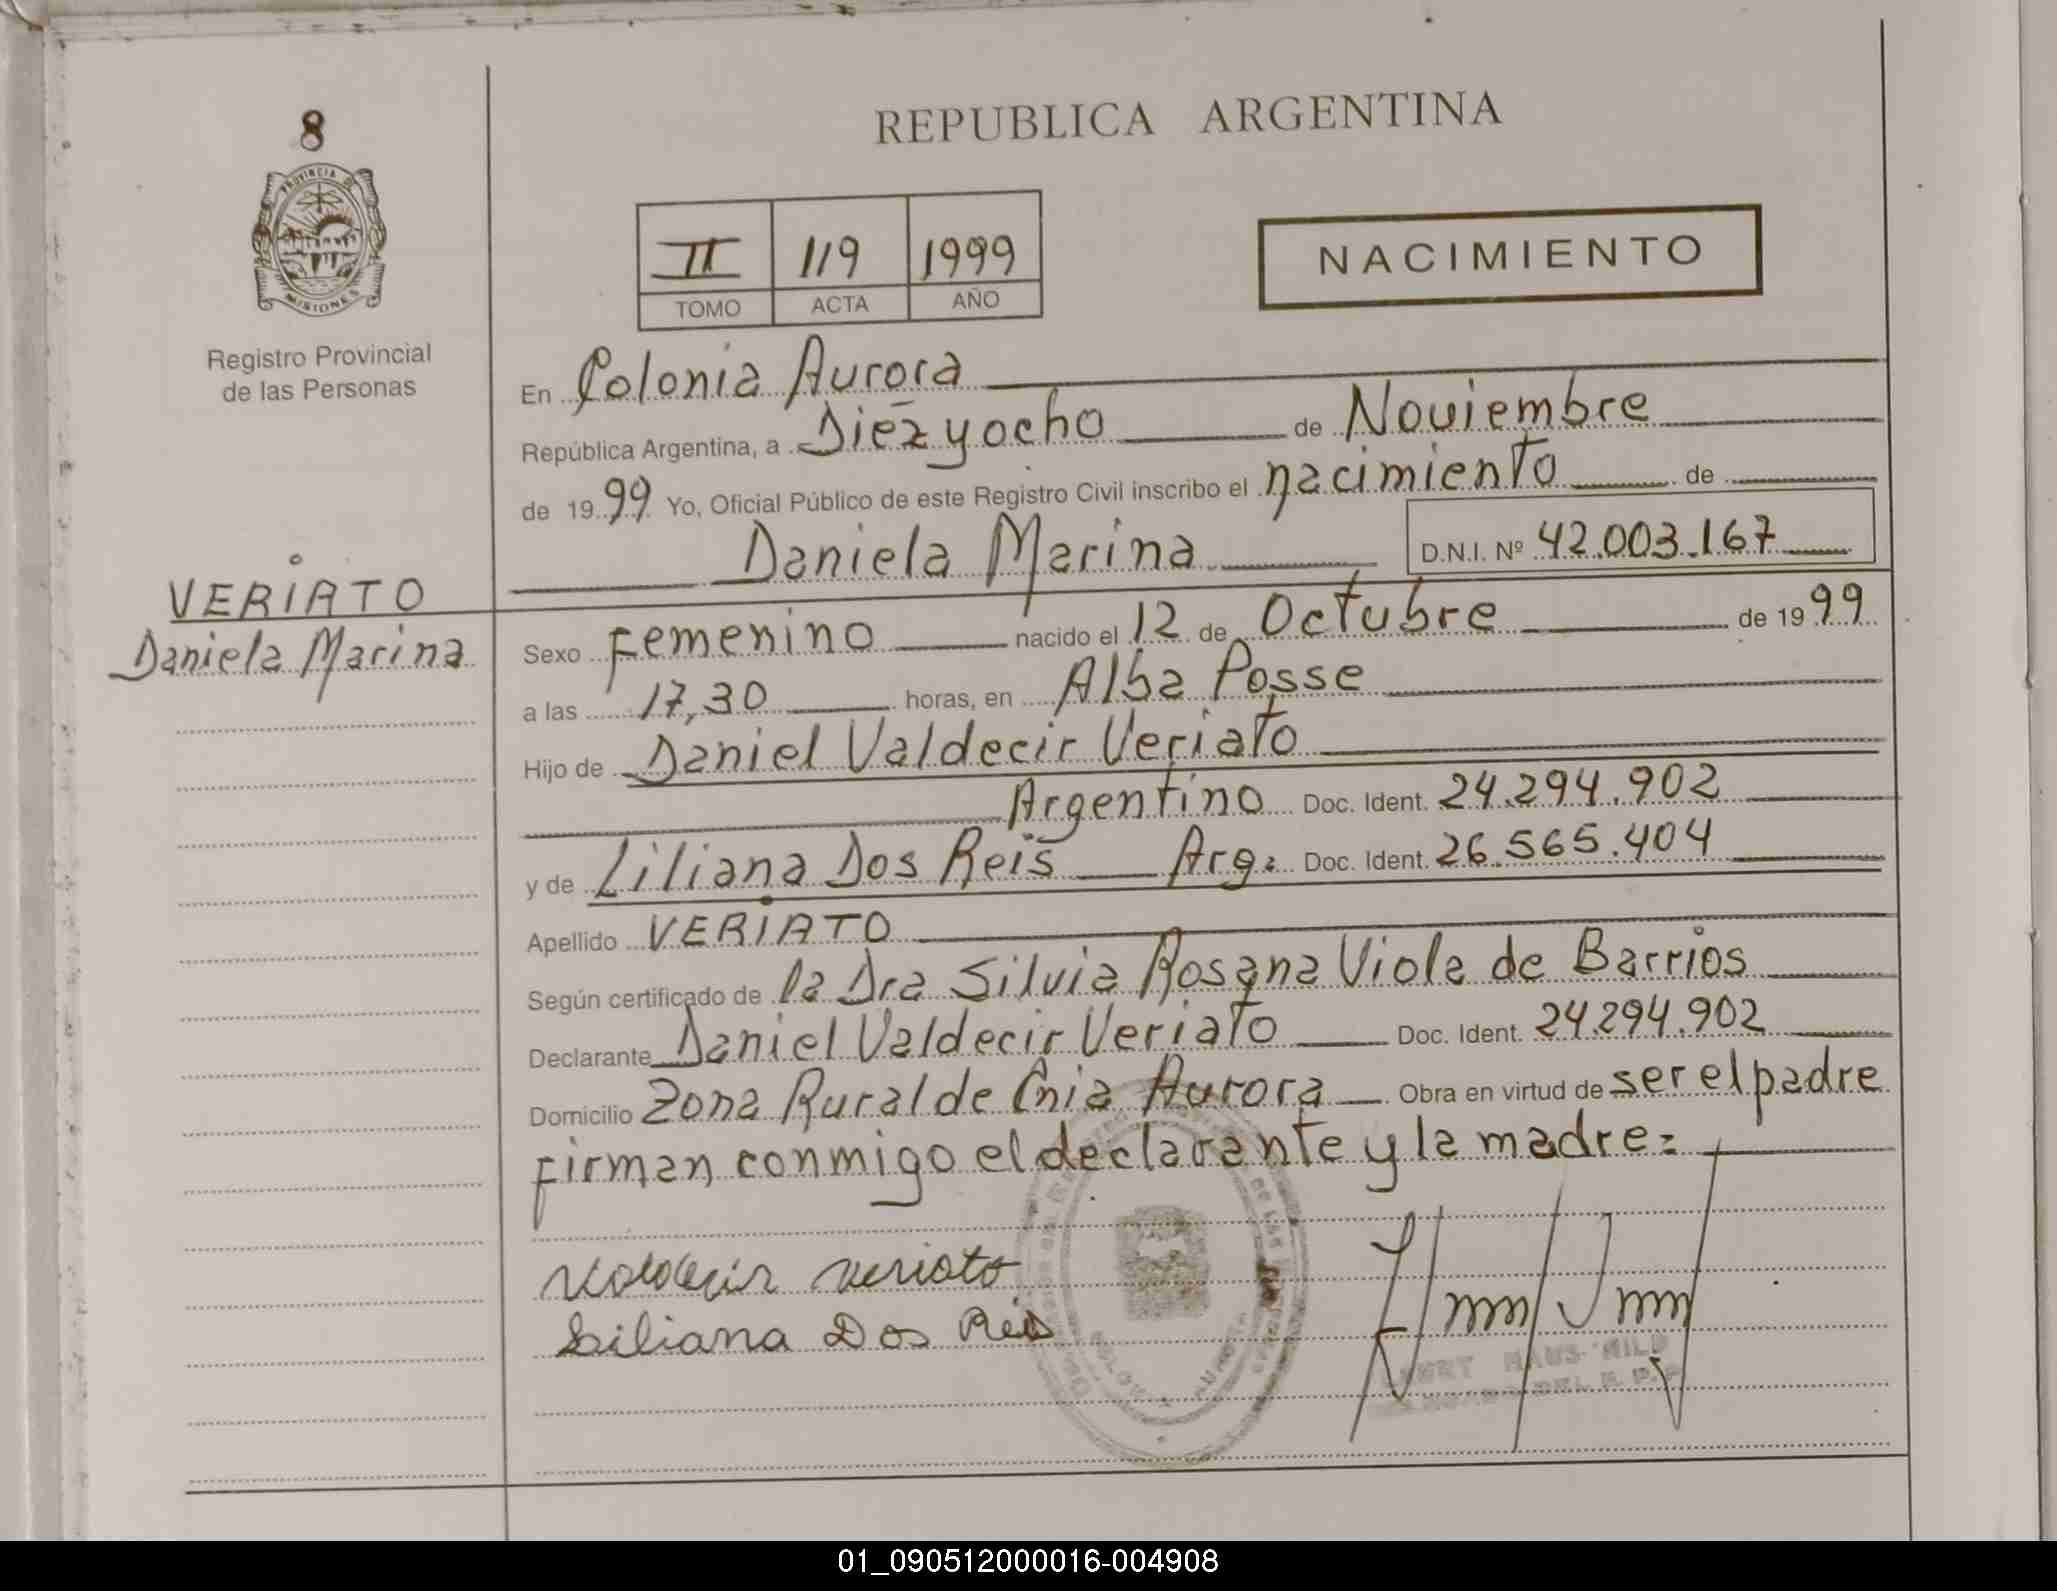 8
PROVINCIA DE
MISIONES
Registro Provincial
de las Personas
VERIATO
Daniela Marina
REPUBLICA ARGENTINA
II 119 1999
TOMO ACTA AÑO
NACIMIENTO
En Colonia Aurora
República Argentina, a Diez y ocho de Noviembre
de 1999 Yo, Oficial Público de este Registro Civil inscribo el nacimiento de
Daniela Marina D.N.I. Nº 42.003.167
Sexo Femenino nacido el 12 de Octubre de 1999
a las 17,30 horas, en Alba Posse
Hijo de Daniel Valdecir Veriato
Argentino Doc. Ident. 24.294.902
y de Liliana Dos Reis Arg: Doc. Ident. 26.565.404
Apellido VERIATO
Según certificado de la Dra Silvia Rosana Viola de Barrios
Declarante Daniel Valdecir Veriato Doc. Ident. 24.294.902
Domicilio Zona Rural de Cnia Aurora Obra en virtud de ser el padre
Firman conmigo el declarante y la madre:
Valdecir Veriato
Liliana Dos Reis
COLONIA AURORA
01_090512000016-004908